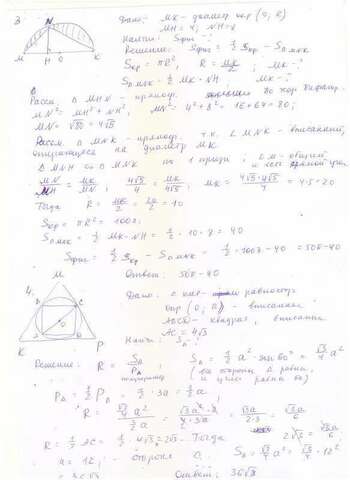 3.
N
M H O K
Дано: MK - диаметр окр (O; R)
MH = 4, NH = 8
Найти: Sфиг - ?
Решение: Sфиг = 1/2 Sкр - S△MNK
Sкр = πR², R = MK/2, MK - ?
S△MNK = 1/2 MK · NH MK - ?
Рассм. △ MHN - прямоуг. по теор Пифагора
MN² = MH² + NH², MN² = 4² + 8² = 16 + 64 = 80;
MN = √80 = 4√5
Рассм △ MNK - прямоуг. т.к. ∠ MNK - вписанный,
опирающийся на диаметр MK.
△ MNH ∽ △ MNK по 1 призн, ∠M - общий
MN/MH = MK/MN, 4√5/4 = MK/4√5, MK = 4√5·4√5/4 = 4·5 = 20
Тогда R = MK/2 = 20/2 = 10
Sкр = πR² = 100π.
S△MNK = 1/2 MK · NH = 1/2 · 10 · 8 = 40
Sфиг = 1/2 Sкр - S△MNK = 1/2 · 100π - 40 = 50π - 40
Ответ: 50π - 40
4.
M
B C
O
K P
Дано: равностор
окр (O; R) - вписанная
ABCD - квадрат, вписан
AC = 4√3
Найти: S△ - ?
Решение: R = S△/P△ S△ = 1/2 a² · sin 60° = √3/4 a²
полупериметр
P△ = 1/2 P△ = 1/2 · 3a = 3/2 a,
R = √3a/2·3 = √3a/6
R = 1/2 AC = 1/2 · 4√3 = 2√3. Тогда 2√3 = √3a/6,
a = 12, - сторона △. S△ = √3/4 a² = √3/4 · 12²
Ответ: 36√3